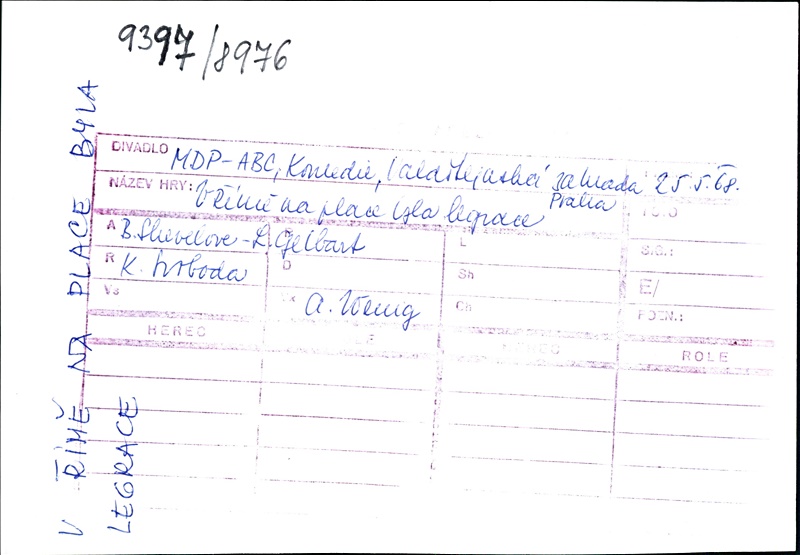 9397/8976
V ŘÍMĚ NA PLACE BYLA
LEGRACE
DIVADLO MDP-ABC, Komedie, Valdštejnská zahrada 25.5.68.
Praha
NÁZEV HRY: V Římě na place byla legrace
A B. Shevelove - L. Gelbart L S.G.:
R K. Svoboda D Sh E/
Vs A. Wenig Ch POZN.:
HEREC ROLE